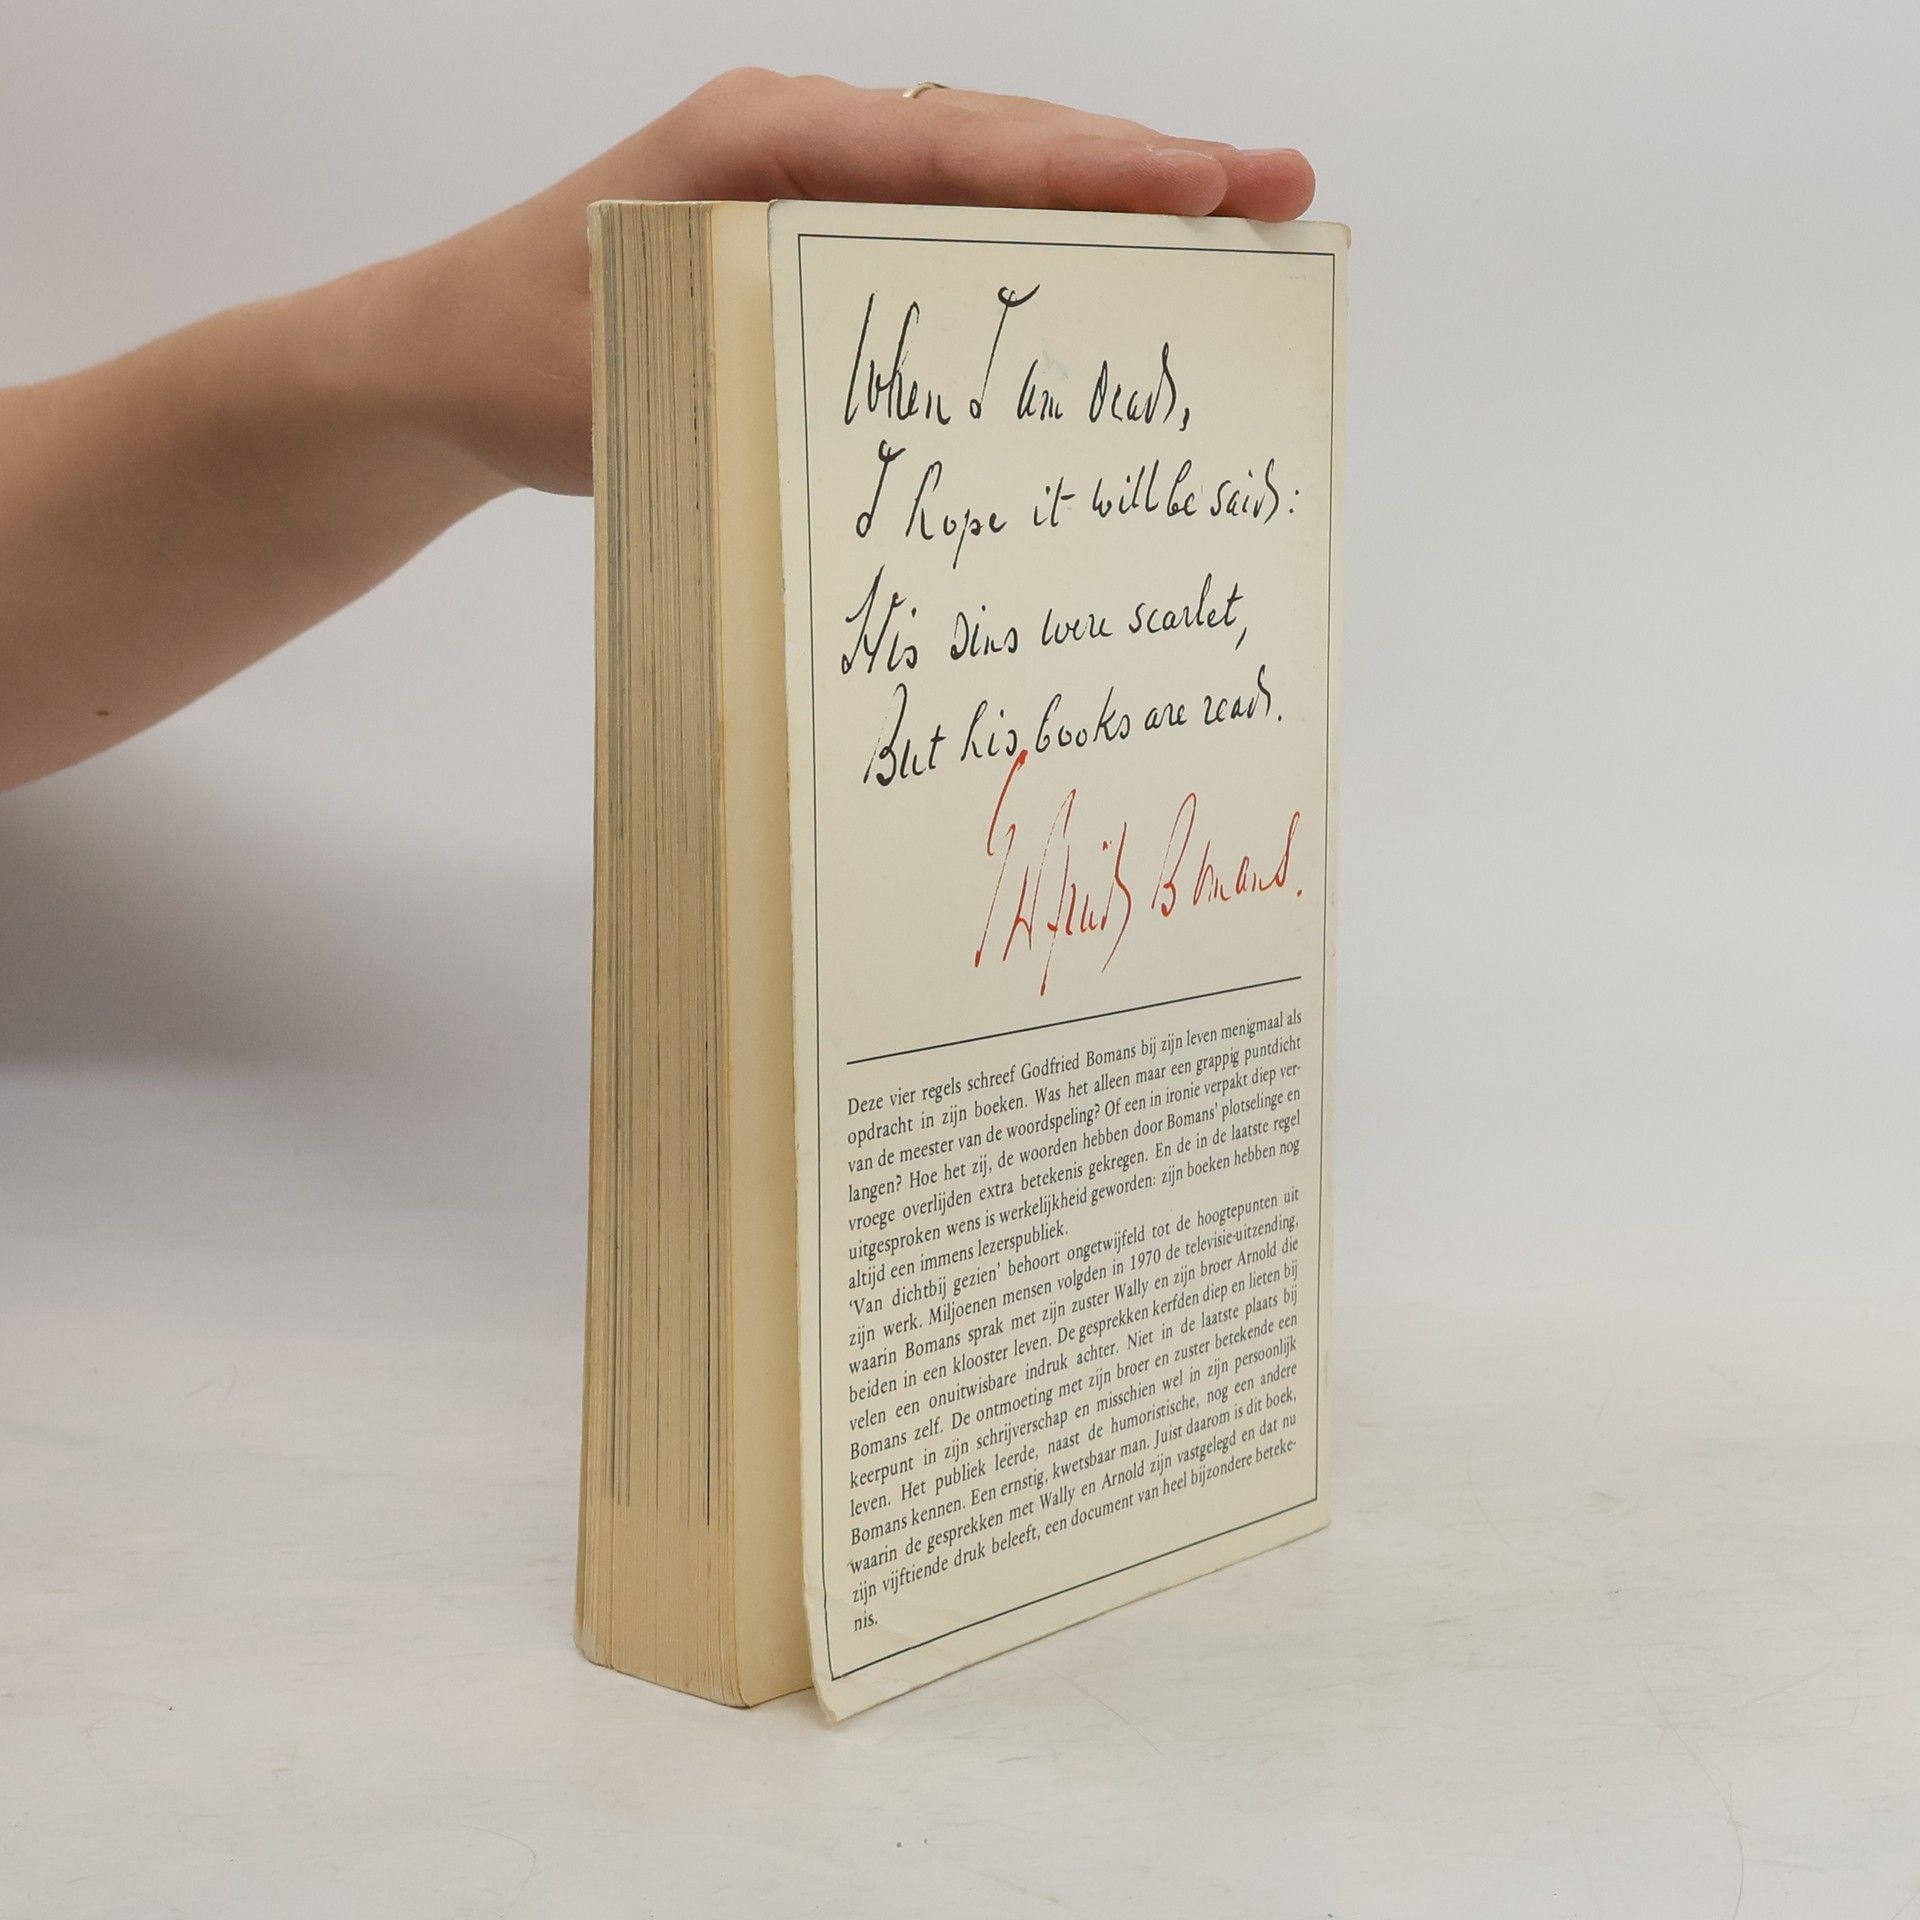 When I am dead,
I hope it will be said:
His sins were scarlet,
But his books are read.
Godfried Bomans.
Deze vier regels schreef Godfried Bomans bij zijn leven menigmaal als
opdracht in zijn boeken. Was het alleen maar een grappig puntdicht
van de meester van de woordspeling? Of een in ironie verpakt diep ver-
langen? Hoe het zij, de woorden hebben door Bomans' plotselinge en
vroege overlijden extra betekenis gekregen. En de in de laatste regel
uitgesproken wens is werkelijkheid geworden: zijn boeken hebben nog
altijd een immens lezerspubliek.
'Van dichtbij gezien' behoort ongetwijfeld tot de hoogtepunten uit
zijn werk. Miljoenen mensen volgden in 1970 de televisie-uitzending,
waarin Bomans sprak met zijn zuster Wally en zijn broer Arnold die
beiden in een klooster leven. De gesprekken kerfden diep en lieten bij
velen een onuitwisbare indruk achter. Niet in de laatste plaats bij
Bomans zelf. De ontmoeting met zijn broer en zuster betekende een
keerpunt in zijn schrijverschap en misschien wel in zijn persoonlijk
leven. Het publiek leerde, naast de humoristische, nog een andere
Bomans kennen. Een ernstig, kwetsbaar man. Juist daarom is dit boek,
waarin de gesprekken met Wally en Arnold zijn vastgelegd en dat nu
zijn vijftiende druk beleeft, een document van heel bijzondere beteke-
nis.